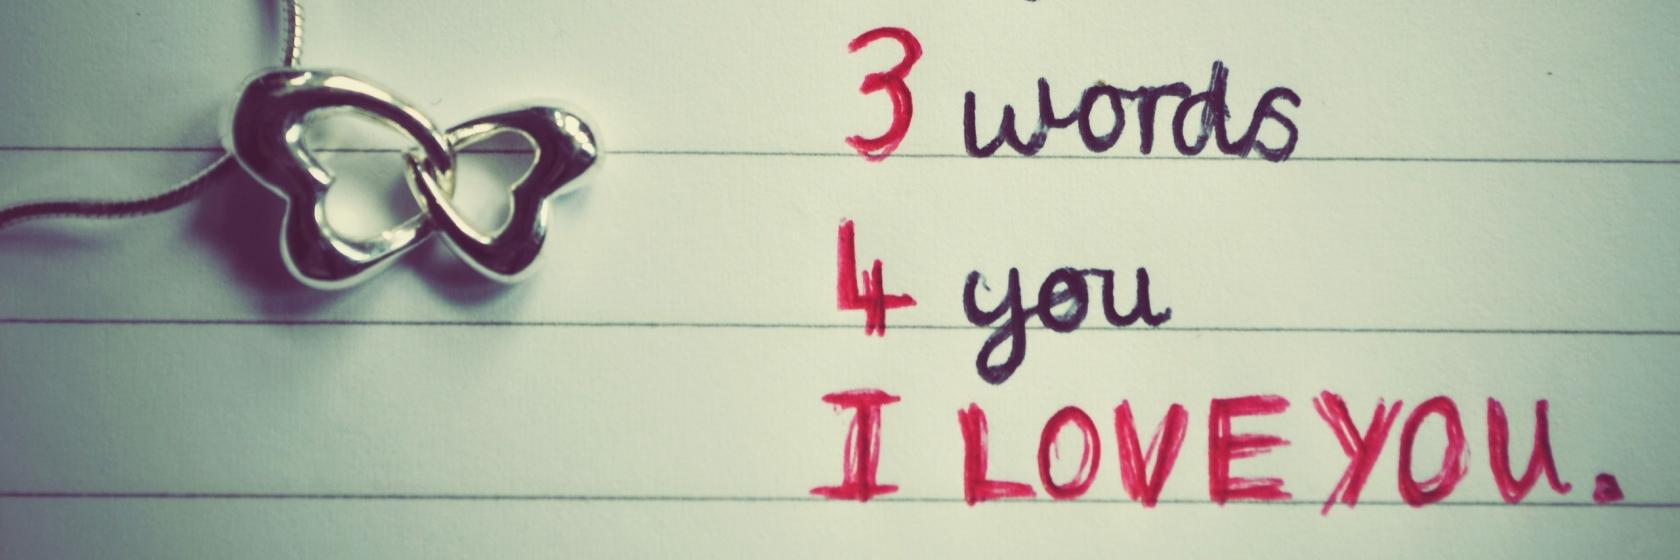 3 words
4 you
I LOVE YOU.